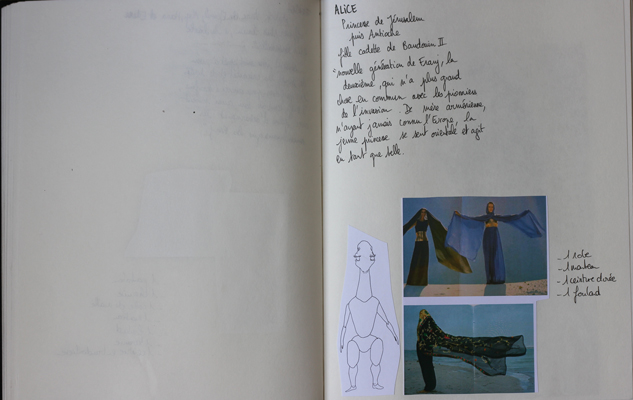 ALICE
Princesse de Jérusalem
puis Antioche
fille cadette de Baudouin II
"nouvelle génération de Franj, la
deuxième, qui n'a plus grand
chose en commun avec les pionniers
de l'invasion. De mère arménienne,
n'ayant jamais connu l'Europe, la
jeune princesse se sent orientale et agit
en tant que telle.
- 1 robe
- 1 manteau
- 1 ceinture dorée
- 1 foulard